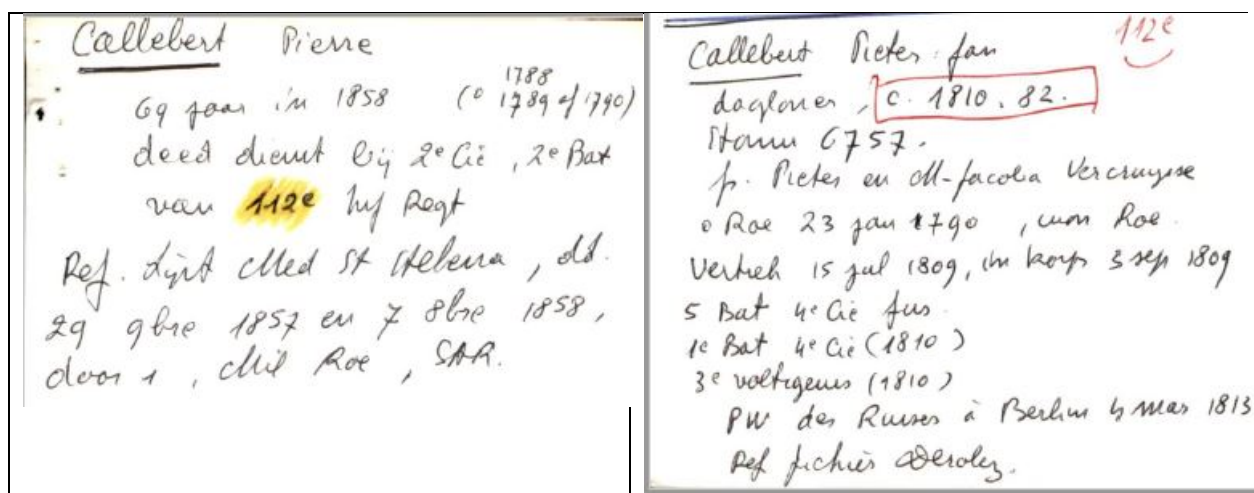 Callebert Pierre
69 jaar in 1858 (° 1788
1789 of 1790)
deed dienst bij 2e Cie, 2e Bat
van 112e Inf Regt
Ref. Lijst Med St Helena, dd.
29 9bre 1857 en 7 8bre 1858,
door , Mil Roe, SAR.
112e
Callebert Pieter Jan
dagloner, c. 1810. 82.
Stamn 6757.
f. Pieter en M-Jacoba Vercruysse
° Roe 23 jan 1790, won Roe.
Vertrek 15 jul 1809, in korps 3 sep 1809
5 Bat 4e Cie fus.
1e Bat 4e Cie (1810)
3e voltigeurs (1810)
PW des Russes à Berlin 4 mar 1813
Ref fichier Derolez.